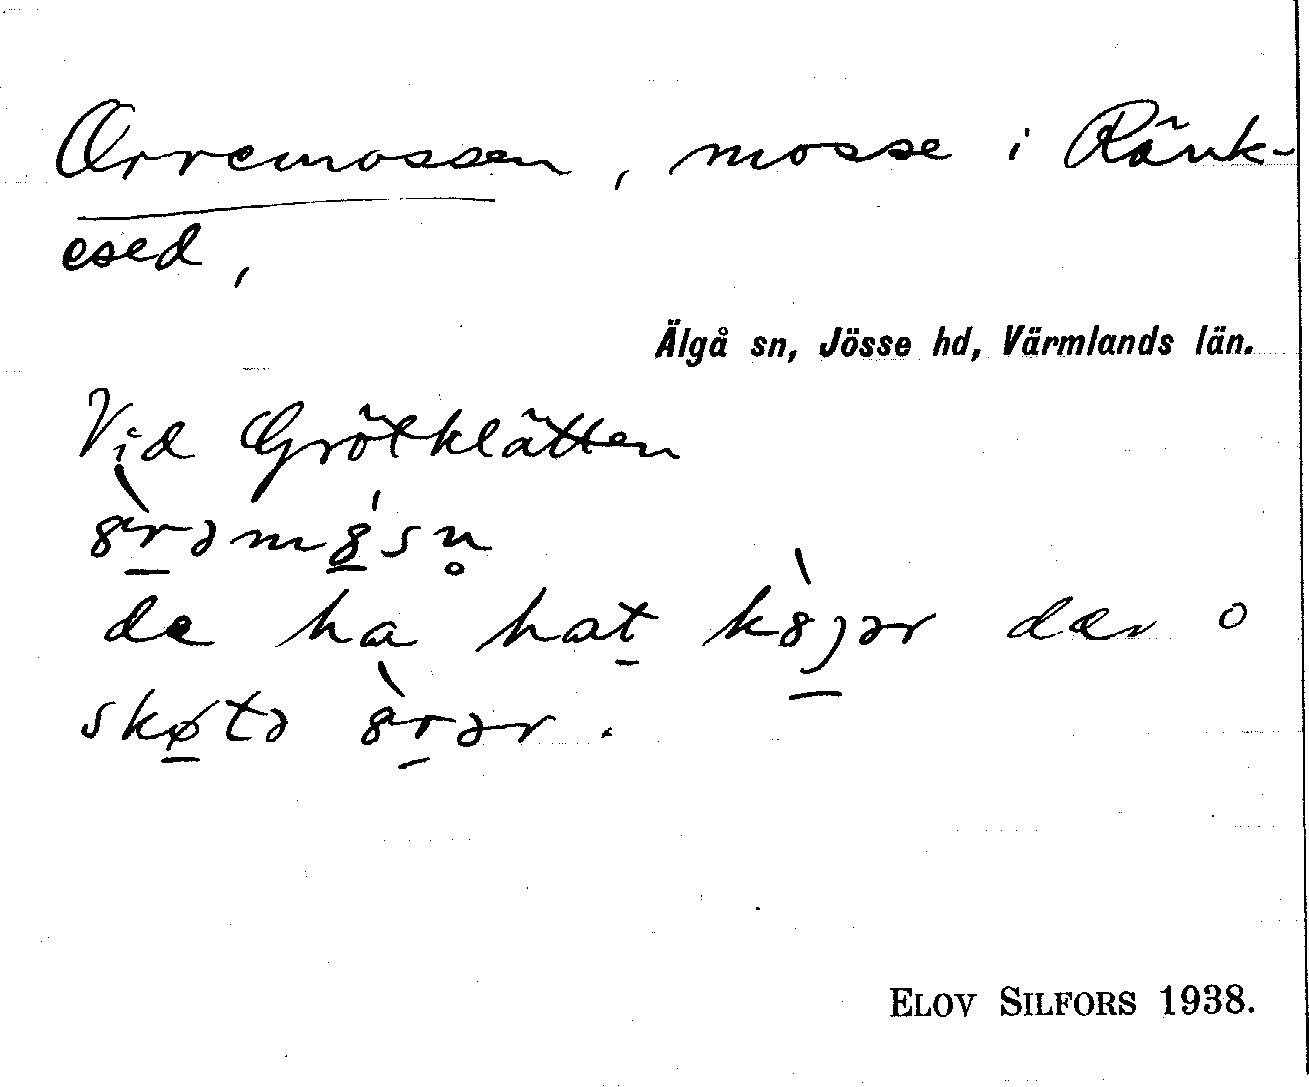 Orremossen, mosse i Ränk-
esed,
Älgå sn, Jösse hd, Värmlands län.
Vid Grötklätten
ȣ̀r̲əmȣ̲́sn̥
de ha hat̲ kȣ̀ȷ̲ər dær o
skø̲tə ȣ̀r̲ər.
ELOV SILFORS 1938.